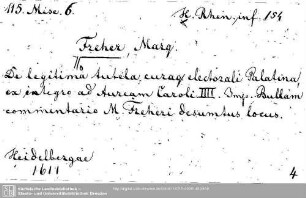 115. Misc. 6. H. Rhen. inf. 154
Freher Marq.
De legitima tutela curaq electorali Palatina
ex integro ad Auream Caroli IIII. Imp. Bullam
commentario M. Freheri desumtus locus.
Heidelbergae
1611
4